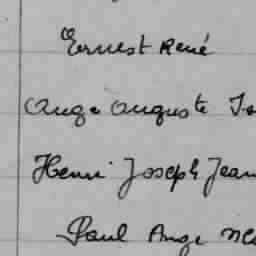 Ernest René
Ange Auguste
Henri Joseph Jean
Paul Ange